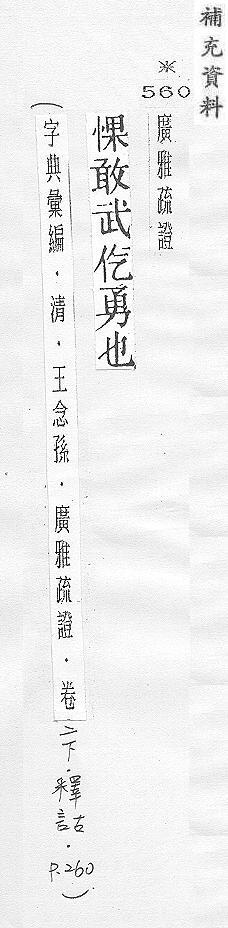 補充資料
※
560
廣雅疏證
惈敢武仡勇也
（字典彙編．清．王念孫．廣雅疏證．卷二下．釋詁．P.260）